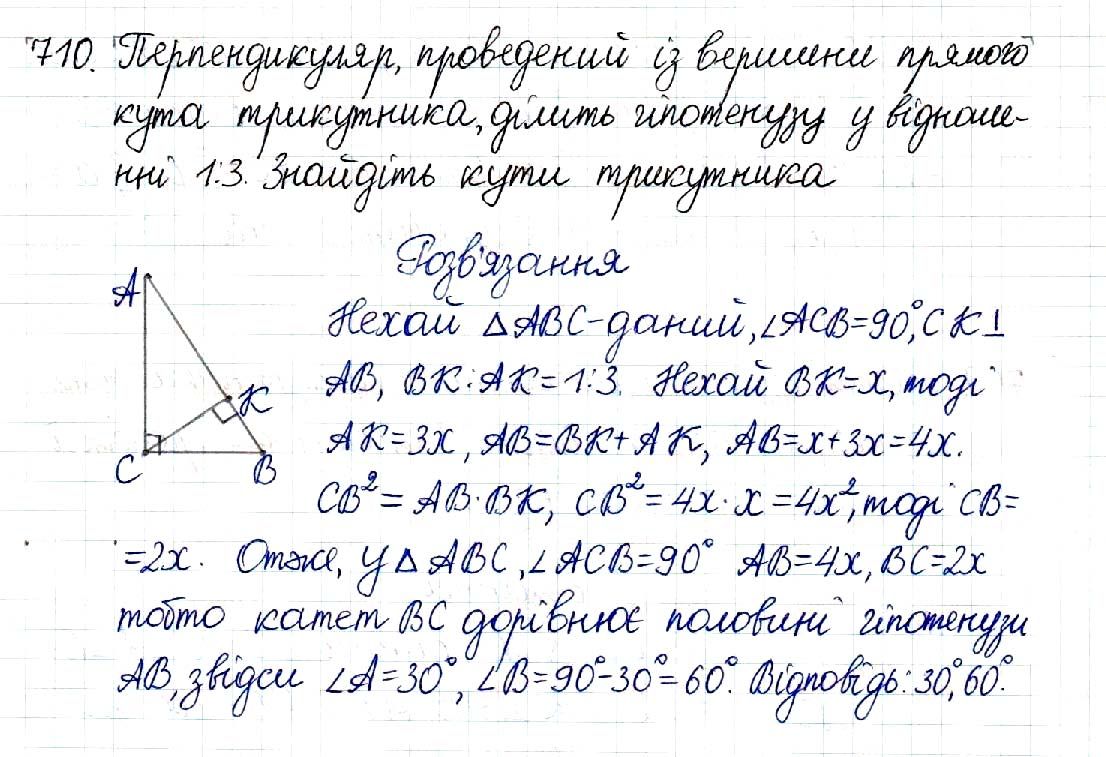 710. Перпендикуляр, проведений із вершини прямого
кута трикутника, ділить гіпотенузу у відноше-
нні 1:3. Знайдіть кути трикутника
Розв'язання
A
K
C
B
Нехай △ABC-даний, ∠ACB=90°, CK⊥
AB, BK:AK=1:3. Нехай BK=x, тоді
AK=3x, AB=BK+AK, AB=x+3x=4x.
CB²=AB·BK, CB²=4x·x=4x², тоді CB=
=2x. Отже, у △ABC, ∠ACB=90° AB=4x, BC=2x
тобто катет BC дорівнює половині гіпотенузи
AB, звідси ∠A=30°, ∠B=90°-30°=60°. Відповідь: 30°, 60°.